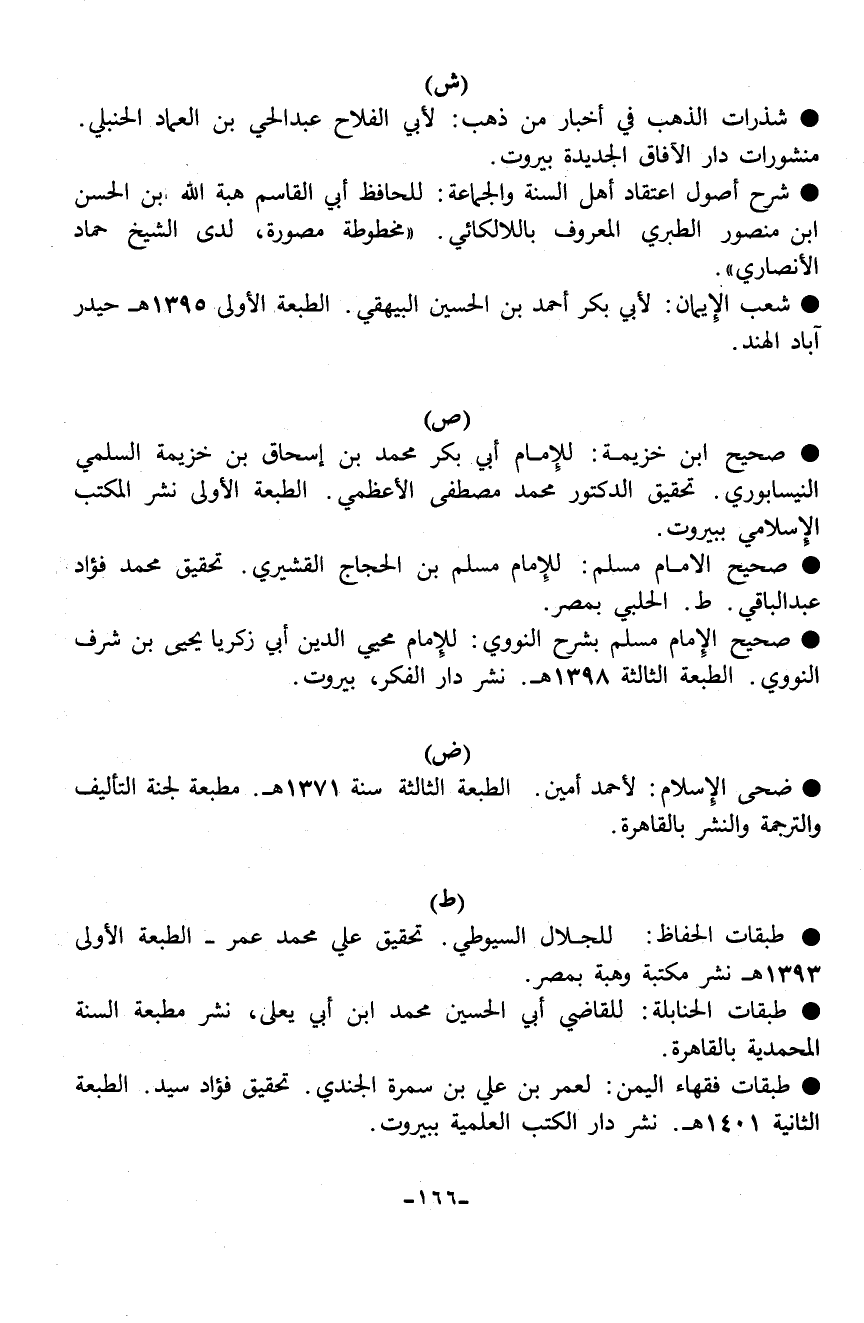 (ش)
● شذرات الذهب في أخبار من ذهب: لأبي الفلاح عبدالحي بن العماد الحنبلي.
منشورات دار الآفاق الجديدة بيروت.
● شرح أصول اعتقاد أهل السنة والجماعة: للحافظ أبي القاسم هبة الله بن الحسن
ابن منصور الطبري المعروف باللالكائي. «مخطوطة مصورة، لدى الشيخ حماد
الأنصاري».
● شعب الإيمان: لأبي بكر أحمد بن الحسين البيهقي. الطبعة الأولى ١٣٩٥هـ حيدر
آباد الهند.
(ص)
● صحيح ابن خزيمة: للإمام أبي بكر محمد بن إسحاق بن خزيمة السلمي
النيسابوري. تحقيق الدكتور محمد مصطفى الأعظمي. الطبعة الأولى نشر المكتب
الإسلامي ببيروت.
● صحيح الامام مسلم: للإمام مسلم بن الحجاج القشيري. تحقيق محمد فؤاد
عبدالباقي. ط. الحلبي بمصر.
● صحيح الإمام مسلم بشرح النووي: للإمام محيي الدين أبي زكريا يحيى بن شرف
النووي. الطبعة الثالثة ١٣٩٨هـ. نشر دار الفكر، بيروت.
(ض)
● ضحى الإسلام: لأحمد أمين. الطبعة الثالثة سنة ١٣٧١هـ. مطبعة لجنة التأليف
والترجمة والنشر بالقاهرة.
(ط)
● طبقات الحفاظ: للجلال السيوطي. تحقيق علي محمد عمر ـ الطبعة الأولى
١٣٩٣هـ نشر مكتبة وهبة بمصر.
● طبقات الحنابلة: للقاضي أبي الحسين محمد ابن أبي يعلى، نشر مطبعة السنة
المحمدية بالقاهرة.
● طبقات فقهاء اليمن: لعمر بن علي بن سمرة الجندي. تحقيق فؤاد سيد. الطبعة
الثانية ١٤٠١هـ. نشر دار الكتب العلمية ببيروت.
ـ١٦٦ـ